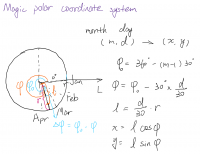 Magic polar coordinate system
month day
(m, d) → (x, y)
φ₀ = 360° - (m-1) 30°
φ = φ₀ - 30° × d/30
l = d/30 · r
x = l cos φ
y = l sin φ
Jan
Feb
Mar
Apr
L
φ
φ₀
r
l
Δφ = φ₀ - φ